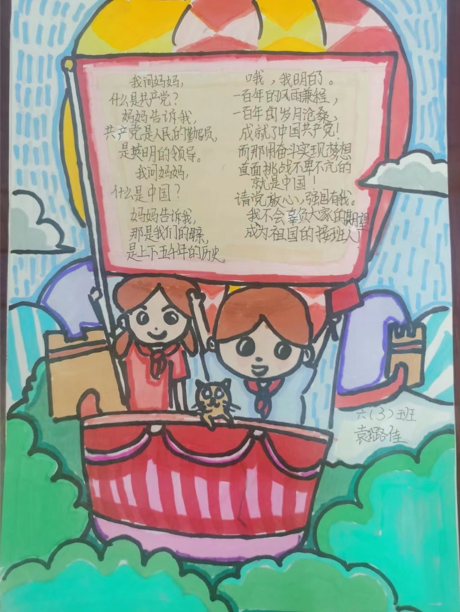 我问妈妈,
什么是共产党?
妈妈告诉我,
共产党是人民的勤务员,
是英明的领导。
我问妈妈,
什么是中国?
妈妈告诉我,
那是我们的国家,
是上下五千年的历史。
哦,我明白了。
一百年的风雨兼程,
一百年的岁月沧桑,
成就了中国共产党!
而那用奋斗实现梦想
直面挑战不畏不屈的
就是中国!
请党放心,强国有我。
我不会辜负大家的期望
成为祖国的接班人!
六(3)班
袁佳